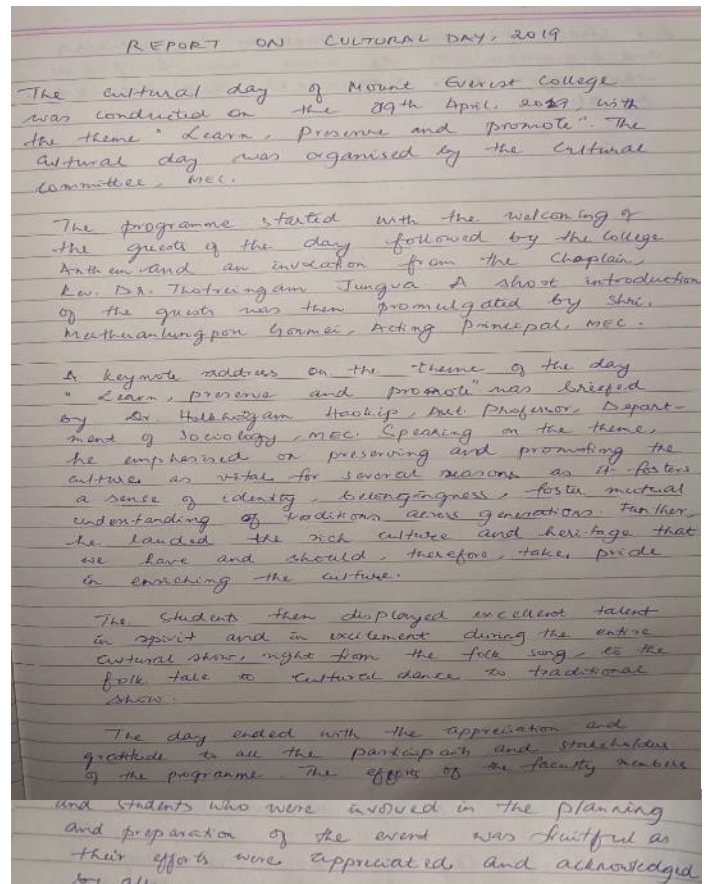 REPORT ON CULTURAL DAY, 2019
The cultural day of Mount Everest College
was conducted on the 09th April, 2019 with
the theme "Learn, Preserve and promote". The
cultural day was organised by the Cultural
committee, MEC.
The programme started with the welcoming of
the guests of the day followed by the College
Anthem and an invocation from the Chaplain,
Rev. DR. Thotreingam Jungva. A short introduction
of the guests was then promulgated by Shri.
Gonmei, Acting Principal, MEC.
A keynote address on the theme of the day
"Learn, preserve and promote" was briefed
by Dr. Haokip, Asst. Professor, Depart-
ment of Sociology, MEC. Speaking on the theme,
he emphasised on preserving and promoting the
culture as vital for several reasons as it fosters
a sense of identity, belongingness, foster mutual
understanding of traditions across generations. Further,
he lauded the rich culture and heritage that
we have and should, therefore, take pride
in enriching the culture.
The students then displayed excellent talent
in spirit and in excitement during the entire
cultural show, right from the folk song, to the
folk tale to cultural dance to traditional
show.
The day ended with the appreciation and
gratitude to all the participants and stakeholders
of the programme. The efforts of the faculty members
and students who were involved in the planning
and preparation of the event was fruitful as
their efforts were appreciated and acknowledged
by all